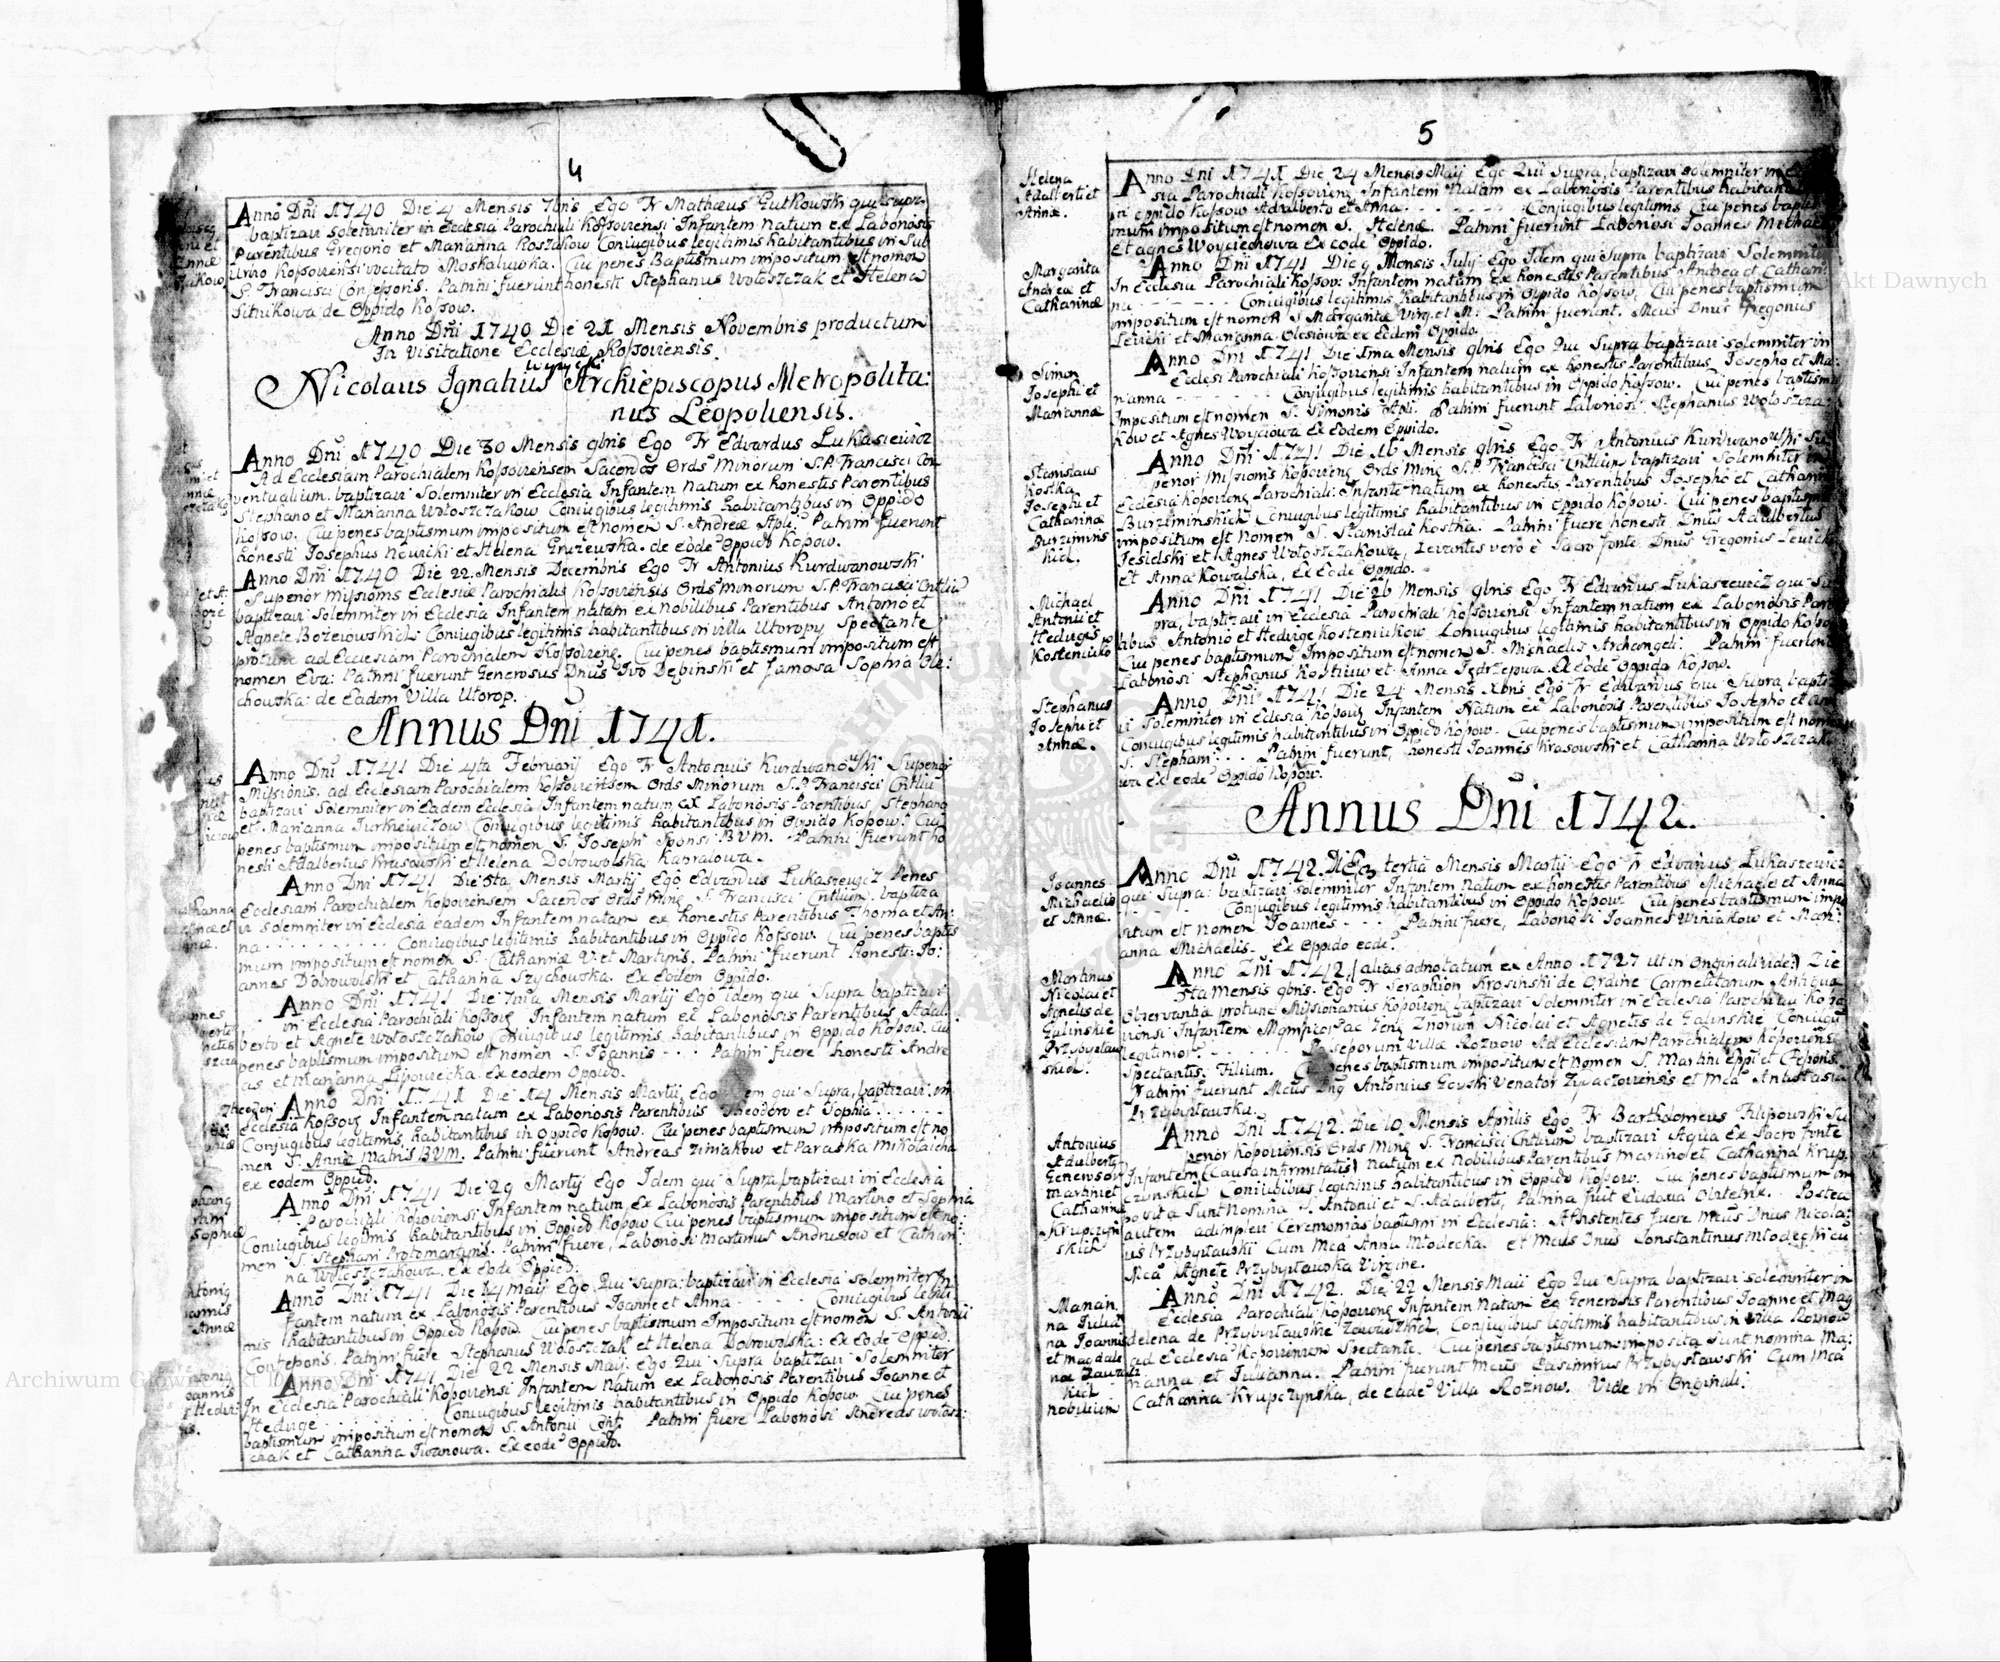 4
Anno Dni 1740. Die 4 Mensis 7bris Ego Fr Mathæus Gutkowski qui supr.
baptizavi solemniter in Ecclesia Parochiali Kossoviensi Infantem natum ex Laboriosis
Parentibus Gregorio et Marianna Koszakow Coniugibus legitimis habitantibus in Sub
Urbio Kossoviensi vocitato Moskaluwka. Cui penes Baptismum impositum est nomen
S. Francisci Confessoris. Patrini fuerunt honesti Stephanus Wołoszczak et Helena
Sitnikowa de Oppido Kossow.
Anno Dni 1740 Die 21 Mensis Novembris productum
In Visitatione Ecclesiæ Kossoviensis.
Wyzycki
Nicolaus Ignatius Archiepiscopus Metropolita:
nus Leopoliensis.
Anno Dni 1740 Die 30 Mensis 9bris Ego Fr Edvardus Lukasiewicz
Ad Ecclesiam Parochialem Kossoviensem Sacerdos Ords Minorum S.P. Francisci Con
ventualium. baptizavi Solemniter in Ecclesia Infantem natum ex honestis Parentibus
Stephano et Marianna Wołoszczakow Coniugibus legitimis habitantibus in Oppido
Kossow. Cui penes baptismum impositum est nomen S. Andreæ Apli. Patrini fuerunt
honesti Josephus Nowicki et Helena Gruzewska. de eode Oppido Kossow.
Anno Dni 1740 Die 22. Mensis Decembris Ego Fr Antonius Kurdwanowski
Superior Missionis Ecclesiæ Parochialis Kossoviensis Ords Minorum S.P. Francisci Cntliu
baptizavi Solemniter in Ecclesia Infantem natam ex nobilibus Parentibus Antonio et
Agnete Bożeiowskich Coniugibus legitimis habitantibus in villa Utoropy Spectante
protunc ad Ecclesiam Parochialem Kossovien. Cui penes baptismum impositum est
nomen Eva: Patrini fuerunt Generosus Dnus Ivo Dębinski et famosa Sophia Ole:
chowska: de Eadem Villa Utorop.
Annus Dni 1741.
Anno Dni 1741 Die 4ta Februarij Ego Fr Antonius Kurdwanowski Superior
Missionis. ad Ecclesiam Parochialem Kossoviensem Ords Minorum S.P. Francisci Cntliu
baptizavi Solemniter in Eadem Ecclesia Infantem natum ex Laboriosis Parentibus Stephano
et Marianna Jurkiewiczow Coniugibus legitimis habitantibus in Oppido Kossow. Cui
penes baptismum impositum est nomen S. Josephi Sponsi BVM. Patrini fuerunt ho
nesti Adalbertus Krasowski et Helena Dobrowolska Kapralowa.
Anno Dni 1741 Die 8ta Mensis Martij Ego Edvardus Lukaszewicz Penes
Ecclesiam Parochialem Kossoviensem Sacerdos Ords Min. S. Francisci Cntlium. baptiza
vi solemniter in Ecclesia eadem Infantem natam ex honestis Parentibus Thoma et An:
na . . . . . . . . Coniugibus legitimis habitantibus in Oppido Kossow. Cui penes baptis
mum impositum est nomen S. Catharinæ V. et Martyris. Patrini fuerunt honesti: Jo:
annes Dobrowolski et Catharina Szychowska. Ex Eodem Oppido.
Anno Dni 1741. Die 7ma Mensis Martij Ego idem qui Supra baptizavi
in Ecclesia Parochiali Kossov. Infantem natum ex Laboriosis Parentibus Adal:
berto et Agnete Wołoszczakow Coniugibus legitimis habitantibus in Oppido Kossow. Cui
penes baptismum impositum est nomen S. Joannis . . . . Patrini fuere honesti Andre
as et Marianna Lipowiecka. ex eodem Oppido.
Anno Dni 1741 Die 14 Mensis Martij Ego idem qui Supra, baptizavi. in
Ecclesia Kossov. Infantem natam ex Laboriosis Parentibus Theodoro et Sophia . . . . . .
Coniugibus legitimis, habitantibus in Oppido Kossow. Cui penes baptismum impositum est no
men S. Annæ Matris BVM. Patrini fuerunt Andreas Zimakow et Paraska Mikołaicha
ex eodem Oppido.
Anno Dni 1741 Die 29 Martij Ego Idem qui Supra, baptizavi in Ecclesia
Parochiali Kossoviensi Infantem natum, ex Laboriosis Parentibus Martino et Sophia
Coniugibus legitimis habitantibus in Oppido Kossow Cui penes baptismum impositum est no:
men S. Stephani Protomartyris. Patrini fuere, Laboriosi Martinus Andrusow et Cathari:
na Wołoszczakowa. ex Eode Oppido.
Anno Dni 1741 Die 14 Maij Ego Qui Supra: baptizavi in Ecclesia solemniter In
fantem natum ex Laboriosis Parentibus Joanne et Anna . . . . . Coniugibus legiti
mis habitantibus in Oppido Kossow. Cui penes baptismum Impositum est nomen S. Antonii
Confessoris. Patrini fuere Stephanus Wołoszczak et Helena Dobrowolska: Ex Eode Oppido.
Anno Dni 1741 Die 22 Mensis Maij Ego Qui Supra baptizavi Solemniter
In Ecclesia Parochiali Kossoviensi Infantem Natum ex Laboriosis Parentibus Joanne et
Hedvige . . . . . . . . Coniugibus legitimis habitantibus in Oppido Kossow. Cui penes
baptismum impositum est nomen S. Antonii Conf. Patrini fuere Laboriosi Andreas Wołosz:
czak et Catharina Iwanowa. Ex eode Oppido.
5
Helena
Adalberti et
Annæ.
Anno Dni 1741 Die 24 Mensis Maij Ego Qui Supra, baptizavi solemniter in Eccle
sia Parochiali Kossovien. Infantem Natam ex Laboriosis Parentibus habitantibus
in Oppido Kossow Adalberto et Anna. . . . . . . . . Coniugibus legitimis Cui penes baptis
mum impositum est nomen S. Helenæ. Patrini fuerunt Laboriosi Joannes Michae
et Agnes Woyciechowa Ex eode Oppido.
Margarita
Andreæ et
Catharinæ
Anno Dni 1741 Die 9 Mensis July Ego Idem qui Supra baptizavi Solemniter
In Ecclesia Parochiali Kossov: Infantem natam Ex honestis Parentibus Andrea et Cathari
na . . . . . . Coniugibus legitimis habitantibus in Oppido Kossow. Cui penes baptismum
impositum est nomen S Margaritæ Virg. et M. Patrini fuerunt. Mcus Dnus Gregorius
Lewicki et Marianna Olesiowa ex Eodem Oppido.
Simon
Josephi et
Mariannæ
Anno Dni 1741 Die 1ma Mensis 9bris Ego Qui Supra baptizavi solemniter in
Ecclesi Parochiali Kossoviensi Infantem natum ex honestis Parentibus Josepho et Ma:
rianna . . . . . . . . Coniugibus legitimis habitantibus in Oppido Kossow. Cui penes baptismu
Impositum est nomen S. Simonis Apli. Patrini fuerunt Laboriosi Stephanus Wołoszcza:
kow et Agnes Woyciowa Ex Eodem Oppido.
Stanislaus
Kostka
Josephi et
Catharinæ
Burzimins
kich.
Anno Dni 1741 Die 16 Mensis 9bris Ego Fr Antonius Kurdwanowski Su
perior Missionis Kossovien. Ords Min. S.P. Francisci Cntlium baptizavi Solemniter in
Ecclesia Kossovien. Parochiali: Infante Natum ex honestis Parentibus Josepho et Catharina
Burziminskich Coniugibus legitimis habitantibus in Oppido Kossow. Cui penes baptismu
impositum est nomen S. Stanislai Kostka: Patrini fuere honesti Dnus Adalbertus
Jesielski et Agnes Wołoszczakowa, Levantes vero è Sacro fonte Dnus Gregorius Lewicki
Et Anna Kowalska, Ex Eode Oppido.
Michael
Antonii et
Hedvigis
Kosteniuko
Anno Dni 1741 Die 26 Mensis 9bris Ego Fr Edvardus Lukaszewicz qui Su
pra, baptizavi in Ecclesia Parochiali Kossoviensi Infantem natum ex Laboriosis Paren
tibus Antonio et Hedvige Kosteniukow. Coniugibus legitimis habitantibus in Oppido Kossow
Cui penes baptismum Impositum est nomen S. Michaelis Archangeli: Patrini fuerunt
Laboriosi Stephanus Kostiuw et Anna Jędrzejowa. Ex Eode Oppido Kossow.
Stephanus
Josephi et
Annæ.
Anno Dni 1741 Die 24 Mensis Xbris Ego Fr Edvardus qui Supra, baptiza
vi solemniter in Eclesia Kossov. Infantem Natum ex Laboriosis Parentibus Josepho et Anna
Coniugibus legitimis habitantibus in Oppido Kossow. Cui penes baptismum impositum est nomen
S. Stephani . . . Patrini fuerunt, honesti Joannes Krasowski et, Catharina Wołoszczak
wa Ex eode Oppido Kossow.
Annus Dni 1742.
Joannes
Michaelis
et Annæ.
Anno Dni 1742. Die tertia Mensis Martij Ego Fr Edvardus Lukaszewicz
qui Supra: baptizavi solemniter Infantem Natum ex honestis Parentibus Michaele et Anna
. . . . . . Coniugibus legitimis habitantibus in Oppido Kossow. Cui penes baptismum impo
situm est nomen Joannes . . . Patrini fuere, Laboriosi Joannes Winiakow et Mari:
anna Michaelis. Ex Oppido eode.
Martinus
Nicolai et
Agnetis de
Galinskie
Przybysław
skich
Anno Dni 1742, (alias adnotatum ex Anno 1727 ut in Originali vide) Die
5ta Mensis 9bris. Ego Fr Seraphion Krosinski de Ordine Carmelitarum Antiquæ
Observantiæ protunc Missionarius Kossovien. baptizavi Solemniter in Ecclesia Parochiali Kosso
viensi Infantem Mgnificor. ac Gen. Dnorum Nicolai et Agnetis de Galinskie Coniugu
legitimor. . . . . . . . Possessorum Villæ Roznow Ad Ecclesiam Parochialem Kossovien.
Spectantis. Filium. Cui penes baptismum impositum est Nomen S. Martini Eppi et Confessoris.
Patrini fuerunt Mcus Dns Antonius Govski Venator Zydaczoviensis et Mca Anastasia
Przybysławska.
Antonius
Adalbertg
Generosor
Martini et
Catharinæ
Krupczyn
skich
Anno Dni 1742. Die 10 Mensis Aprilis Ego Fr Bartholomeus Filipowski Su
perior Kossoviensis Ords Min. S. Francisci Cntlium baptizavi Aqua Ex Sacro fonte
Infantem (Causa infirmitatis) Natum ex Nobilibus Parentibus Martino et Catharina Krup
czynskich Coniugibus legitimis habitantibus in Oppido Kossow. Cui penes baptismum im
posita Sunt Nomina S. Antonii et S. Adalberti, Patrina fuit Eudoxia Obtelnik. Postea
autem adimplevi Ceremonias baptismi in Ecclesia: Assistentes fuere Mcus Dnus Nicola:
us Przybysławski Cum Mca Anna Młodecka. et Mcus Dnus Constantinus Młodecki cu
Mca Agnete Przybysławska Virgine.
Marian
na Julia
na Joannis
et Magdale
næ Zawadz
kich
nobilium
Anno Dni 1742. Die 22 Mensis Maii Ego Qui Supra baptizavi solemniter in
Ecclesia Parochiali Kossovien. Infantem Natam Ex Generosis Parentibus Joanne et Mag
delena de Przybysławskie Zawadzkich, Coniugibus legitimis habitantibus in Villa Roznow
ad Ecclesia Kossoviensem Spectante. Cui penes baptismum imposita Sunt nomina Ma:
rianna et Julianna. Patrini fuerunt Mcus Casimirus Przybysławski Cum Mca
Catharina Krupczynska, de eade Villa Roznow. Vide in Originali.